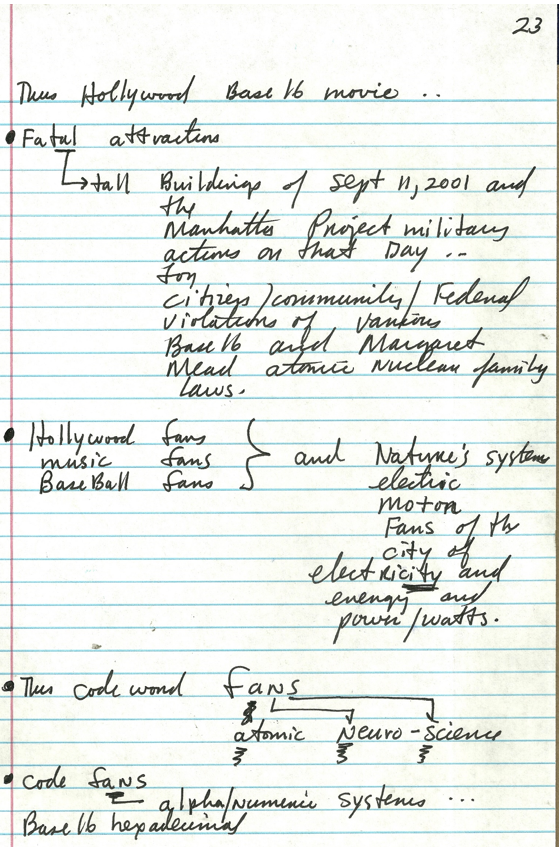 23
Thus Hollywood Base 16 movie ..
• Fatal attractions
→ tall Buildings of Sept 11, 2001 and
the
Manhattan Project military
actions on that Day ..
for
citizens/community/Federal
violations of various
Base 16 and Margaret
Mead atomic Nuclear family
laws.
• Hollywood fans
music fans
BaseBall fans
} and Nature's system
electric
motor
Fans of the
city of
electricity and
energy and
power/watts.
• Thus code word fans
atomic Neuro-Science
• code fans
alpha/numeric systems ...
Base 16 hexadecimal